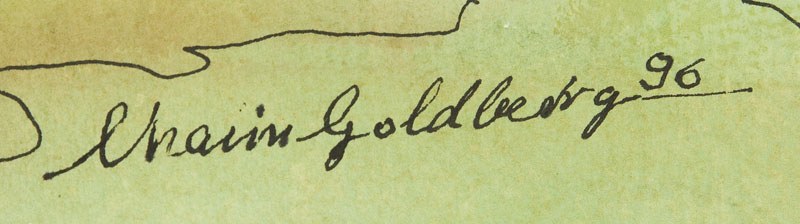 Chaim Goldberg 96